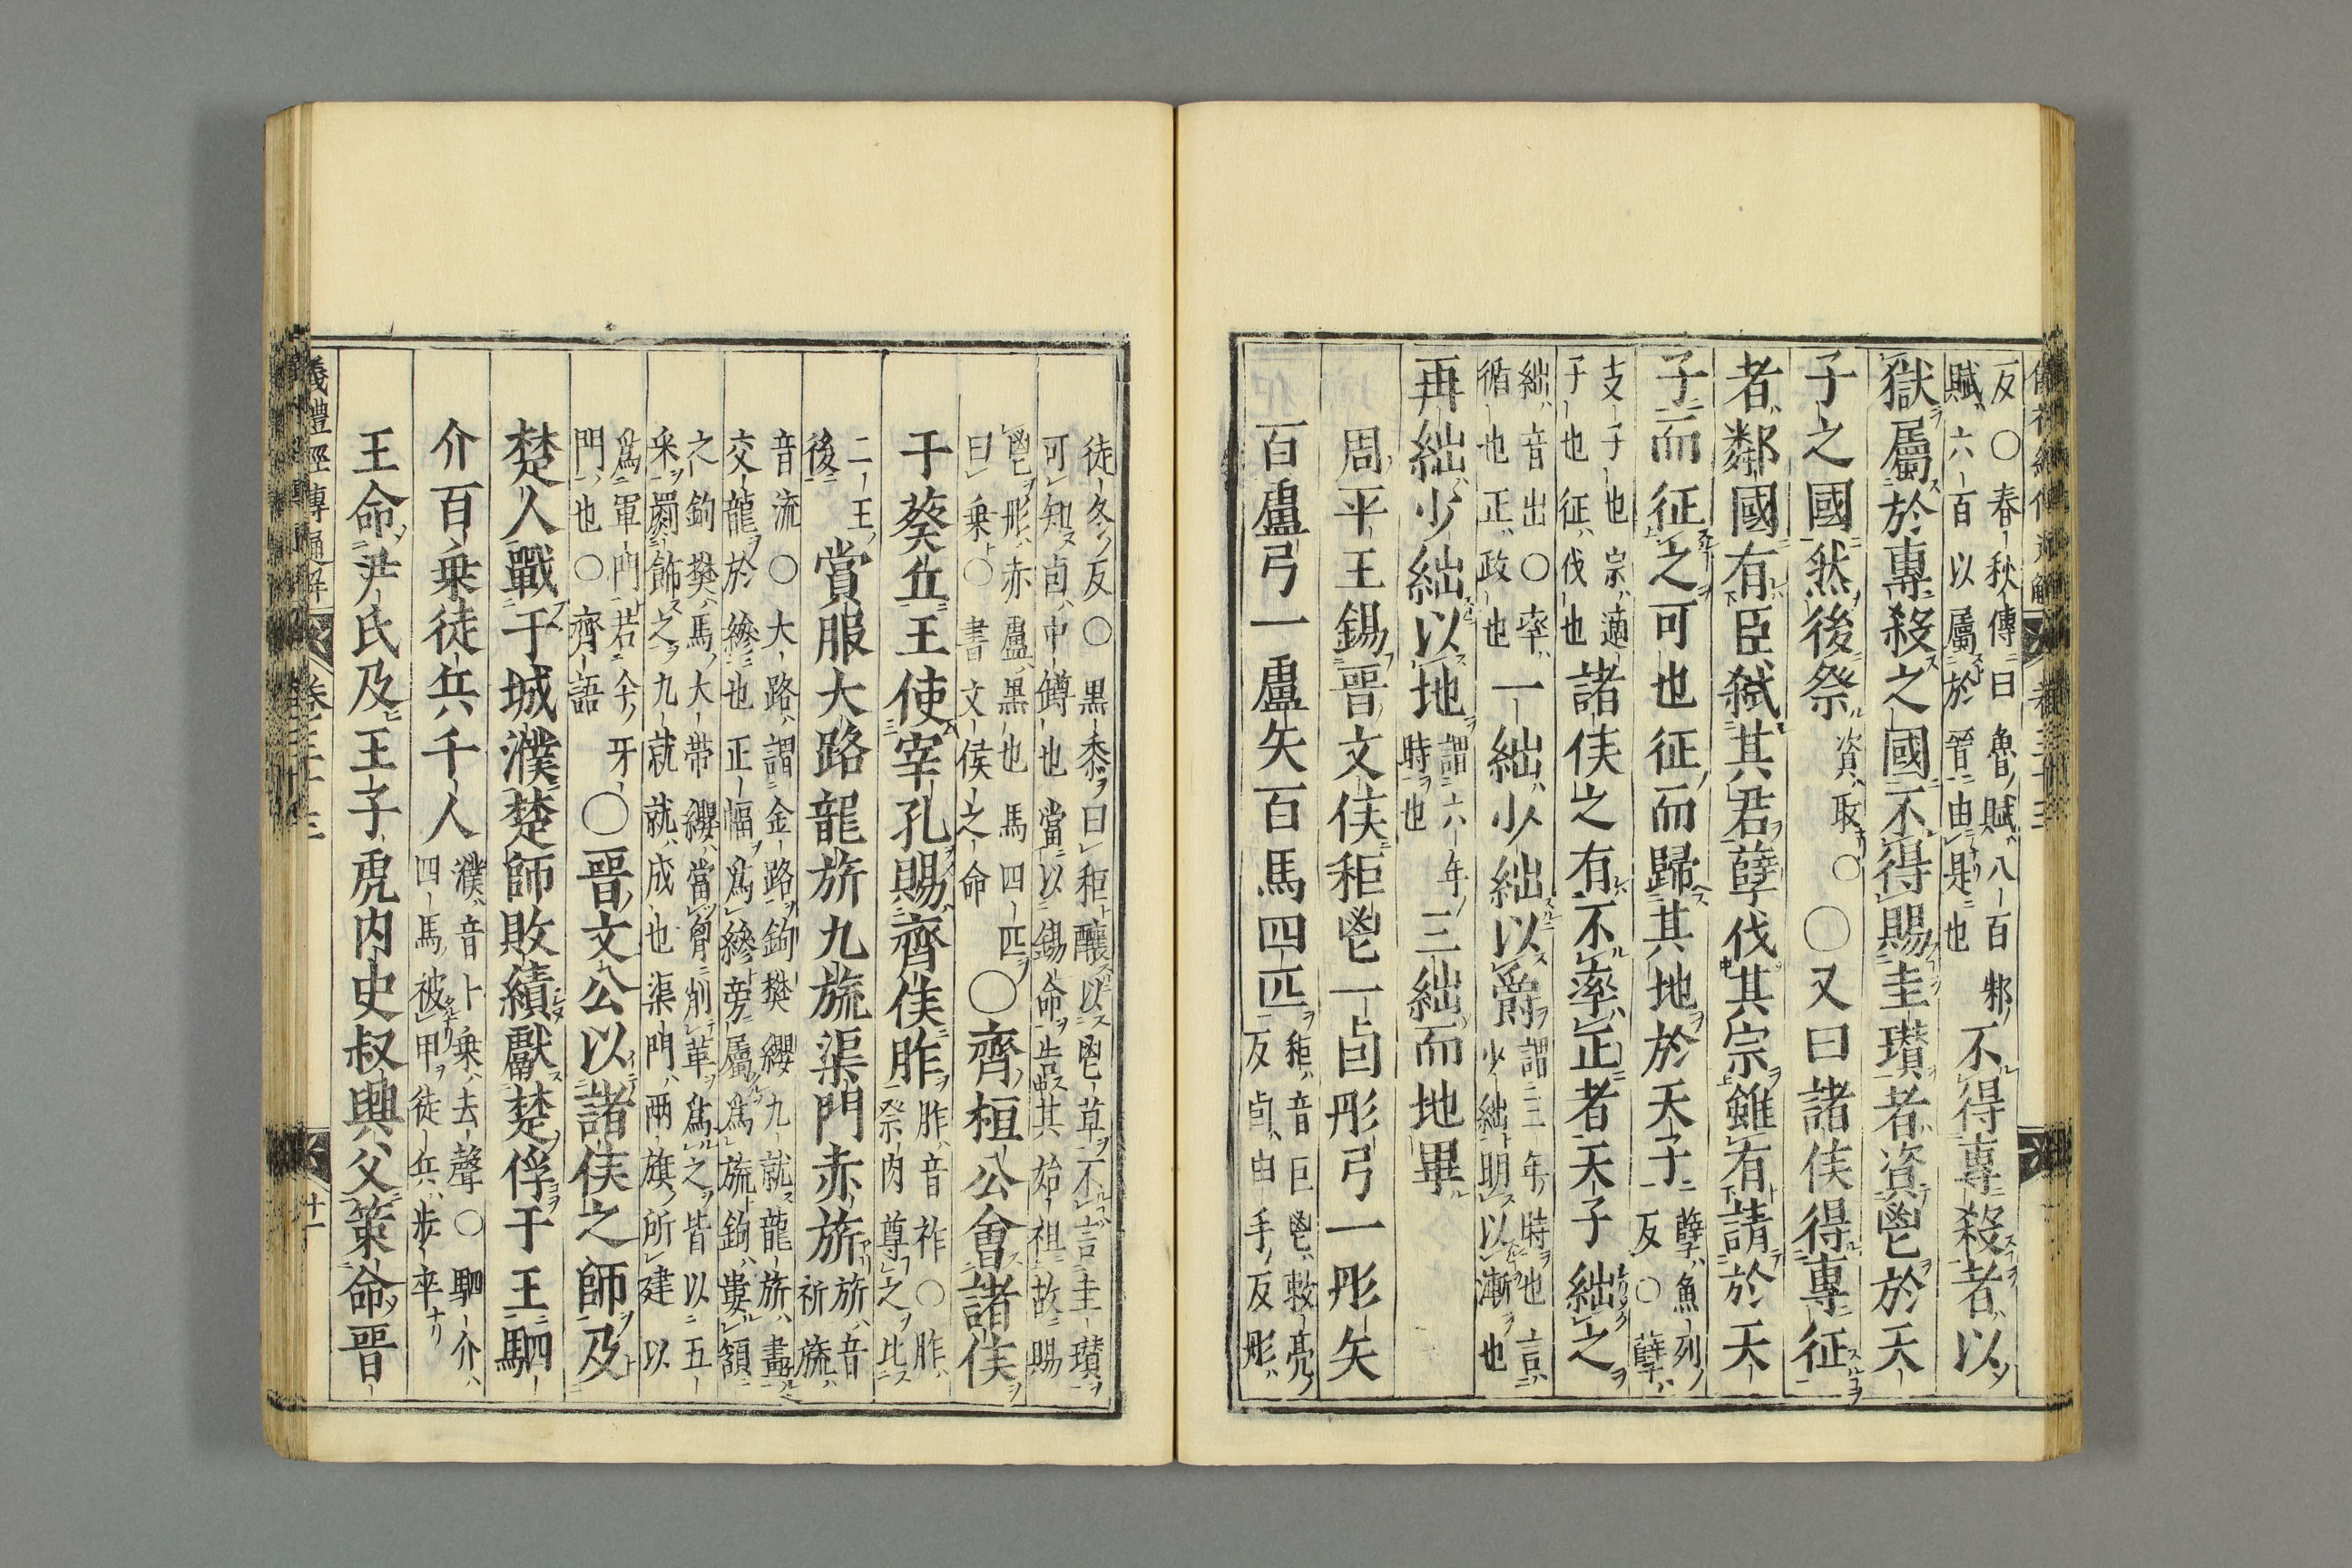 反○春秋傳曰魯賦八百邾
賦六百以屬於晉由是也
不得專殺者以
獄屬於專殺之國不得賜圭瓉者資鬯於天
子之國然後祭
資取○
○又曰諸侯得專征
者鄰國有臣弑其君孽伐其宗雖有請於天
子而征之可也征而歸其地於天子
孽魚列
反○孽
支子也宗適
子也征伐也
諸侯之有不率正者天子絀之
絀音出○率
循也正政也
一絀少絀以爵
謂三年時也言
少絀明以漸也
再絀少絀以地
謂六年
時也
三絀而地畢
周平王錫晉文侯秬鬯一卣彤弓一彤矢
百盧弓一盧矢百馬四匹
秬音巨鬯敕亮
反卣由手反彤
徒冬反○黑黍曰秬釀以鬯草不言圭瓉
可知卣中罇也當以錫命告其始祖故賜
鬯彤赤盧黑也馬四匹
曰乘○書文侯之命
○齊桓公會諸侯
于葵丘王使宰孔賜齊侯胙
胙音祚○胙
祭肉尊之比
二王
後
賞服大路龍旂九旒渠門赤旂
旂音
祈旒
音流○大路謂金路鉤樊纓九就龍旂畫
交龍於縿也正幅爲縿旁屬爲旒鉤婁頷
之鉤樊馬大帶纓當胷削革爲之皆以五
采罽飾之九就就成也渠門兩旗所建以
爲軍門若今牙
門也○齊語
○晉文公以諸侯之師及
楚人戰于城濮楚師敗績獻楚俘于王駟
介百乘徒兵千人
濮音卜乘去聲○駟介
四馬被甲徒兵步卒
王命尹氏及王子虎内史叔興父策命晉
儀禮經傳通解
卷二十三
十一